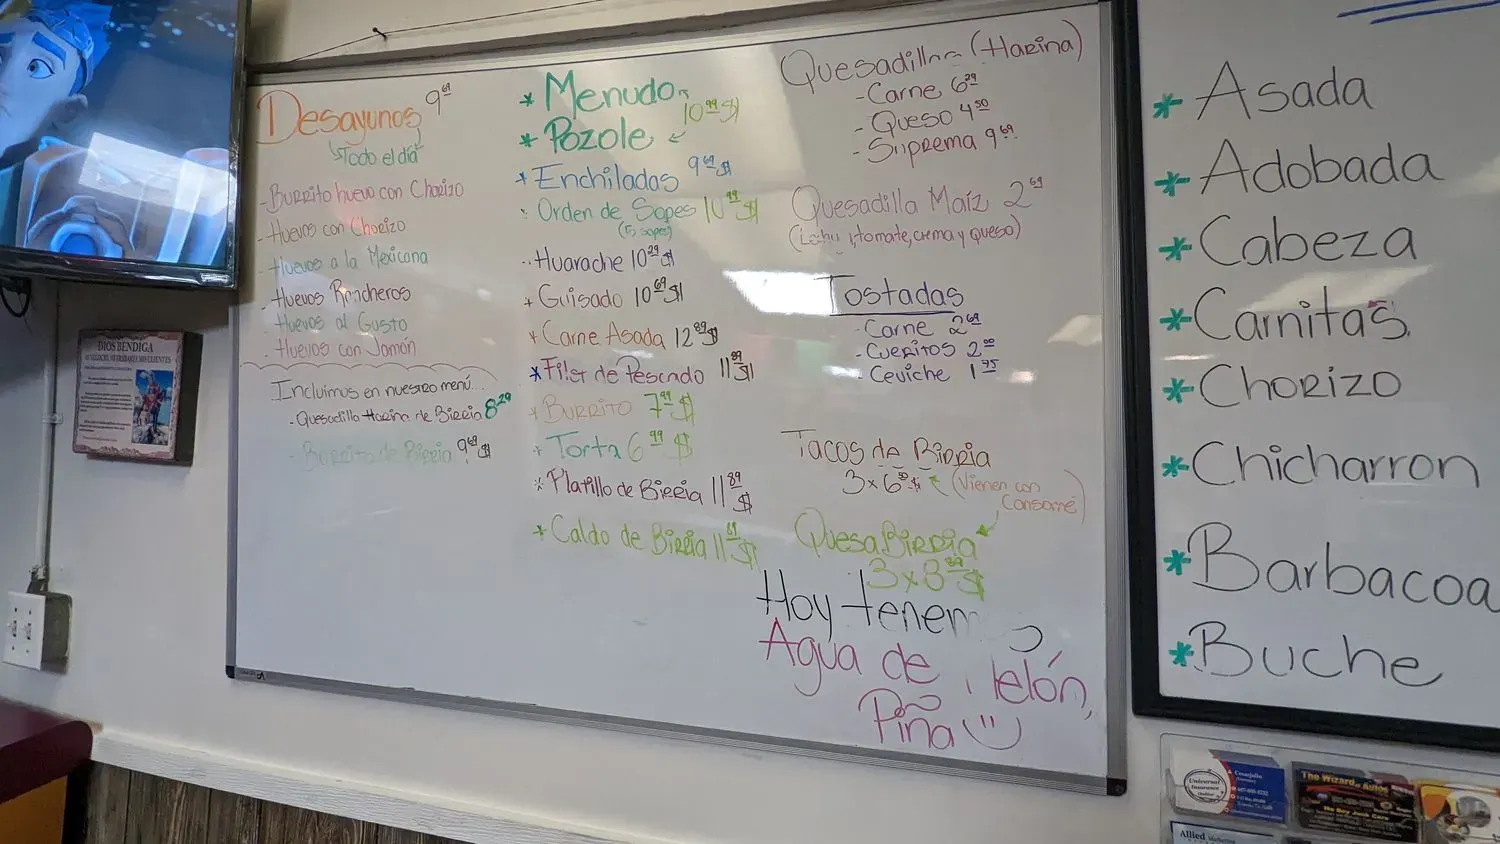 Desayunos 9.69
Todo el día
- Burrito huevo con Chorizo
- Huevos con Chorizo
- Huevos a la Mexicana
- Huevos Rancheros
- Huevos al Gusto
- Huevos con Jamón
Incluimos en nuestro menú...
- Quesadilla Harina de Birria 8.29
- Burrito de Birria 9.69 $
* Menudo
10.99 $
* Pozole
* Enchiladas 9.69 $
Orden de Sopes 10.99 $
(5 sopes)
Huarache 10.29 $
+ Guisado 10.69 $
* Carne Asada 12.89 $
* Filet de Pescado 11.89 $
* Burrito 7.99 $
* Torta 6.99 $
* Platillo de Birria 11.89 $
* Caldo de Birria 11.69 $
Quesadillas (Harina)
- Carne 6.29
- Queso 4.50
- Suprema 9.69
Quesadilla Maíz 2.69
tomate, crema y queso)
Tostadas
- Carne 2.69
- Cueritos 2.00
- Ceviche 1.75
Tacos de Birria
3x6 $ (Vienen con
Consomé)
QuesaBirria
3x8.89 $
Hoy
Agua de
Piña
* Asada
* Adobada
* Cabeza
* Carnitas
* Chorizo
* Chicharron
* Barbacoa
* Buche
DIOS BENDIGA
Universal
Insurance
The Wizard
Allied